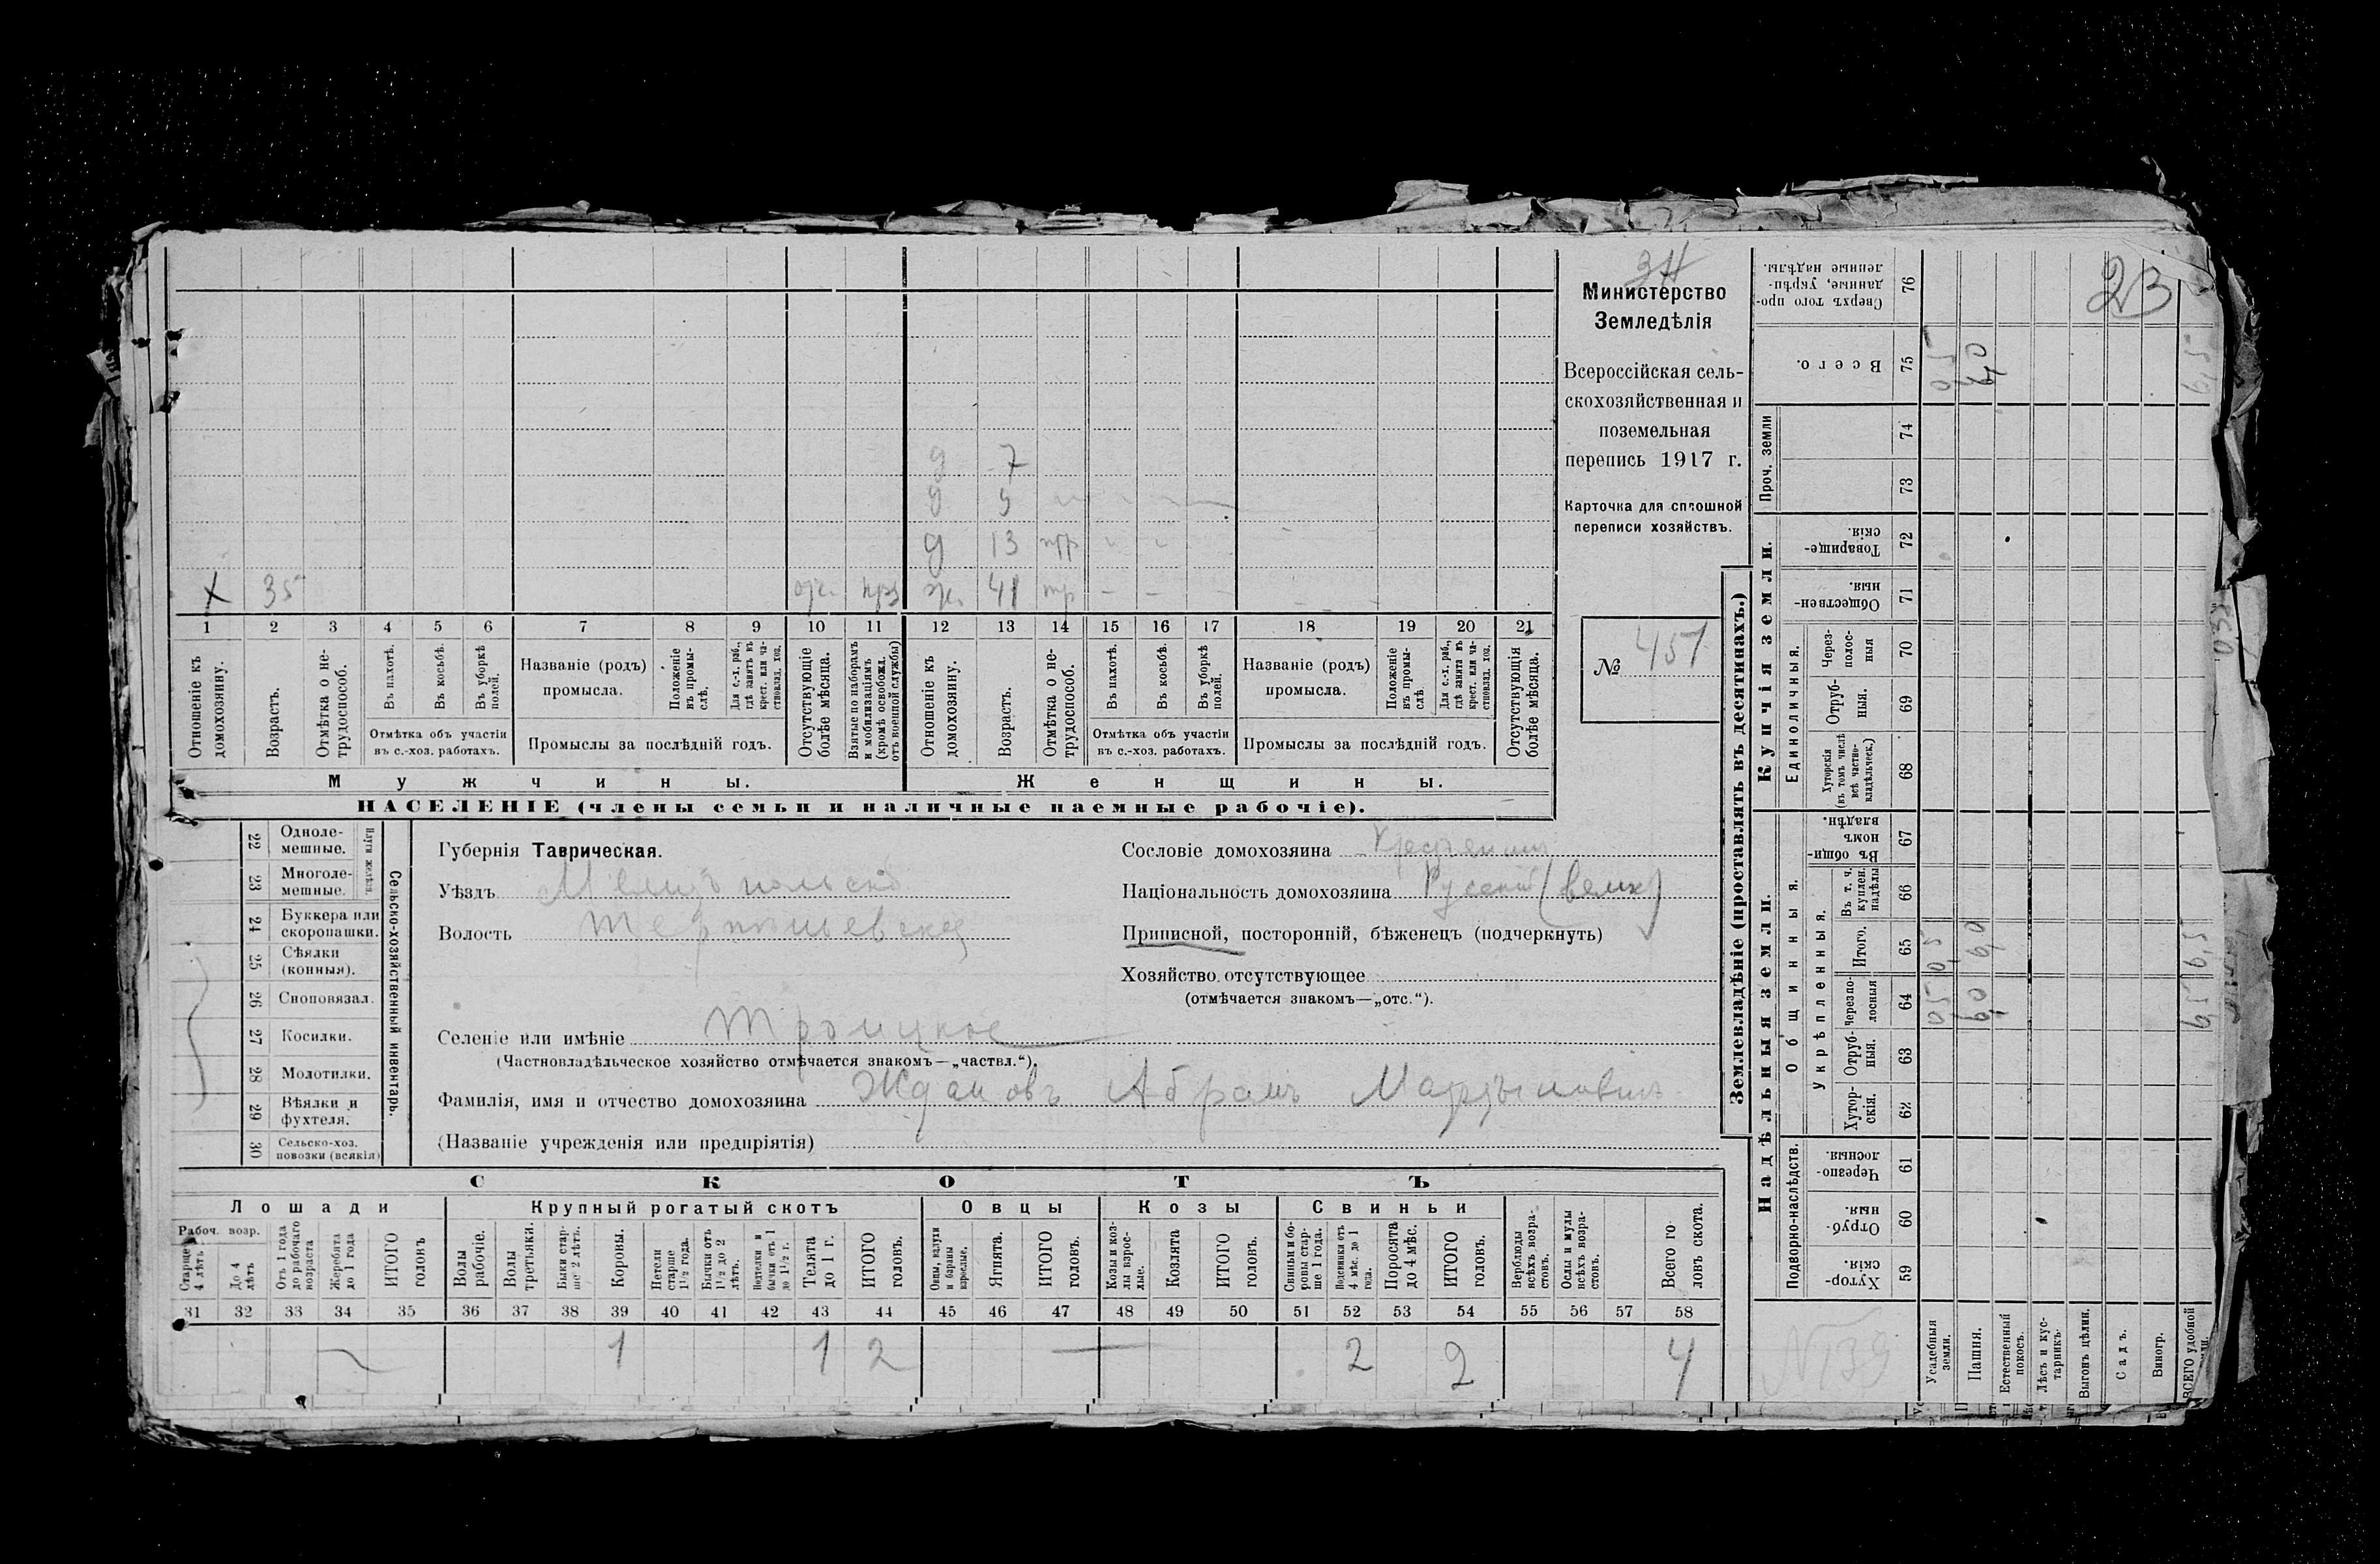 34
Министерство
Земледѣлія
Всероссійская сель-
скохозяйственная и
поземельная
перепись 1917 г.
Карточка для сплошной
переписи хозяйствъ.
№ 457
23
д 7
д 5
д 13
х 35 ж. 41
1 2 3 4 5 6 7 8 9 10 11 12 13 14 15 16 17 18 19 20 21
Отношеніе къ домохозяину.
Возрастъ.
Отмѣтка о не-трудоспособ.
Въ пахотѣ.
Въ косьбѣ.
Въ уборкѣ полей.
Отмѣтка объ участіи
въ с.-хоз. работахъ.
Названіе (родъ)
промысла.
Положеніе въ промы-слѣ,
Для с.-х. раб., гдѣ занятъ въ крест. или ча-стновлад. хоз.
Промыслы за послѣдній годъ.
Отсутствующіе болѣе мѣсяца.
Взятые по наборамъ и мобилизаціямъ (кромѣ освобожд. отъ военной службы)
Отношеніе къ домохозяину.
Возрастъ.
Отмѣтка о не-трудоспособ.
Въ пахотѣ.
Въ косьбѣ.
Въ уборкѣ полей.
Отмѣтка объ участіи
въ с.-хоз. работахъ.
Названіе (родъ)
промысла.
Положеніе въ промы-слѣ
Для с.-х. раб., гдѣ занята въ крест. или ча-стновлад. хоз.
Промыслы за послѣдній годъ.
Отсутствующія болѣе мѣсяца.
Мужчины. Женщины.
НАСЕЛЕНІЕ (члены семьи и наличные наемные рабочіе).
Сельско-хозяйственный инвентарь.
22 Одноле-мешные.
23 Многоле-мешные.
24 Буккера или скоропашки.
25 Сѣялки (конныя).
26 Сноповязал.
27 Косилки.
28 Молотилки.
29 Вѣялки и фухтеля.
30 Сельско-хоз. повозки (всякія)
Губернія Таврическая.
Уѣздъ Мелитопольскій
Волость Терпѣньевская
Селеніе или имѣніе Троицкое
(Частновладѣльческое хозяйство отмѣчается знакомъ—„частвл.“).
Фамилія, имя и отчество домохозяина Ждановъ Абрамъ Мартыновичъ
(Названіе учрежденія или предпріятія)
Сословіе домохозяина Крестьянинъ
Національность домохозяина Русскій (велик)
Приписной, посторонній, бѣженецъ (подчеркнуть)
Хозяйство отсутствующее
(отмѣчается знакомъ—„отс.“).
СКОТЪ
Лошади Крупный рогатый скотъ Овцы Козы Свиньи
Рабоч. возр.
Старше 4 лѣтъ
До 4 лѣтъ
Отъ 1 года до рабочаго возраста
Жеребята до 1 года
ИТОГО головъ
Волы рабочіе.
Волы третьяки.
Быки стар-ше 2 лѣтъ.
Коровы.
Нетели старше 1½ года.
Бычки отъ 1½ до 2 лѣтъ.
Нетелки и бычки отъ 1 до 1½ г.
Телята до 1 г.
ИТОГО головъ.
Овцы, валухи и бараны взрослые.
Ягнята.
ИТОГО головъ.
Козы и коз-лы взрос-лые.
Козлята
ИТОГО головъ.
Свиньи и бо-ровы стар-ше 1 года.
Подсвинки отъ 4 мѣс. до 1 года.
Поросята до 4 мѣс.
ИТОГО головъ.
Верблюды всѣхъ возра-стовъ.
Ослы и мулы всѣхъ возра-стовъ.
Всего го-ловъ скота.
31 32 33 34 35 36 37 38 39 40 41 42 43 44 45 46 47 48 49 50 51 52 53 54 55 56 57 58
1 1 2 2 2 4
Землевладѣніе (проставлять въ десятинахъ.)
Надѣльныя земли.
Купчія земли.
Проч. земли
Подворно-наслѣдств.
Общинныя.
Укрѣпленныя.
Единоличныя.
Хутор-скія. 59
Отруб-ныя. 60
Черезпо-лосныя. 61
Хутор-скія. 62
Отруб-ныя. 63
Черезпо-лосныя 64
Итого. 65
Въ т. ч. куплен. надѣлы 66
Въ общин-номъ владѣн. 67
Хуторскія (въ томъ числѣ всѣ частно-владѣльческ.) 68
Отруб-ныя. 69
Через-полос-ныя 70
Обществен-ныя. 71
Товарище-скія. 72
73
74
Всего. 75
Сверхъ того про-данные, укрѣп-ленные надѣлы. 76
Усадебныя земли.
Пашня.
Естественный покосъ.
Лѣсъ и кус-тарникъ.
Выгонъ цѣлин.
Садъ.
Виногр.
ВСЕГО удобной
N 139